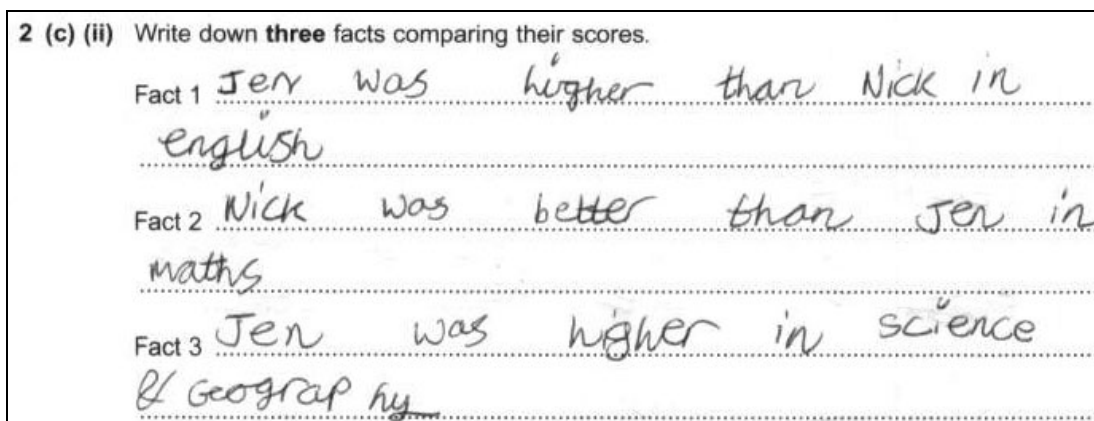 2 (c) (ii) Write down three facts comparing their scores.
Fact 1 Jen was higher than Nick in
english
Fact 2 Nick was better than Jen in
maths
Fact 3 Jen was higher in science
& Geograp hy